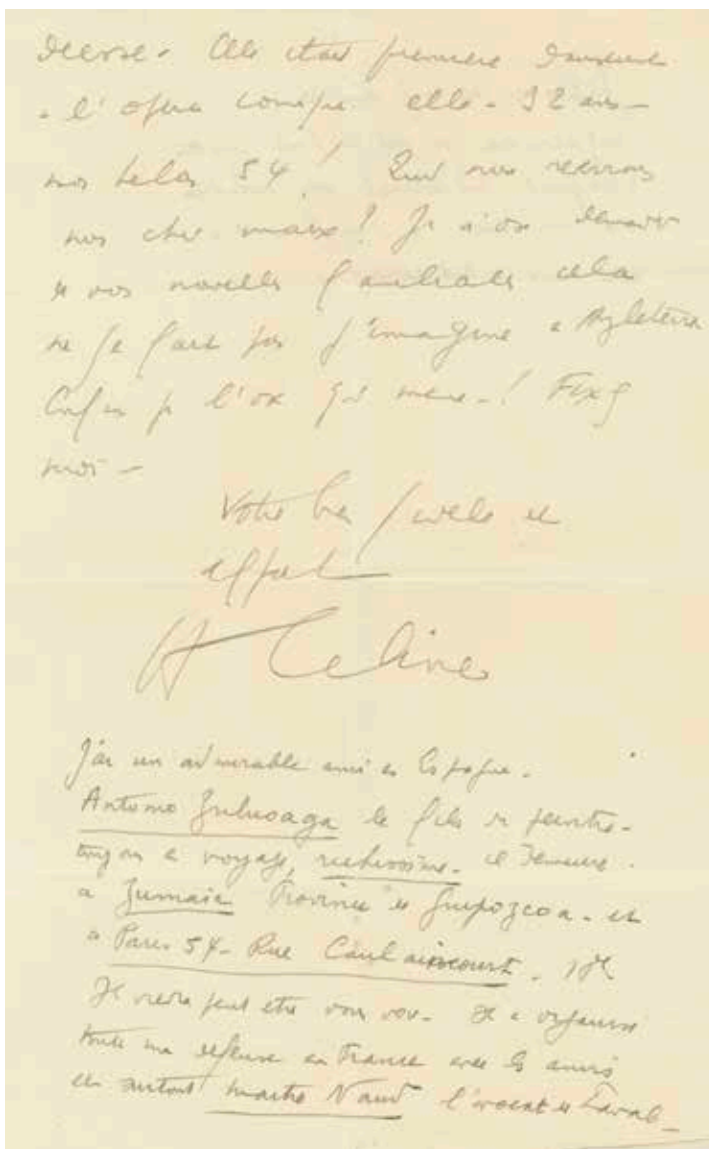 deesse. Elle était première danseuse
à l'opera comique elle. 32 ans -
nos helas 54! Quand nous reverrons
nos cher maux! Je n'ose demander
de vos nouvelles familiales cela
ne se fait pas j'imagine en Angleterre
Enfin je l'ose
moi -
Votre bien fidele et
affect
LF Celine
J'ai un admirable ami en Espagne.
Antonio Zuluoaga le fils du peintre -
toujours en voyage, richissime. il demeure.
à Zumaia Province de Guipozcoa - et
à Paris 54 - Rue Caulaincourt.
Il viendra peut etre vous voir. Il a organisé
toute ma defense en France avec les amis
et surtout maitre Naud l'avocat de Laval -